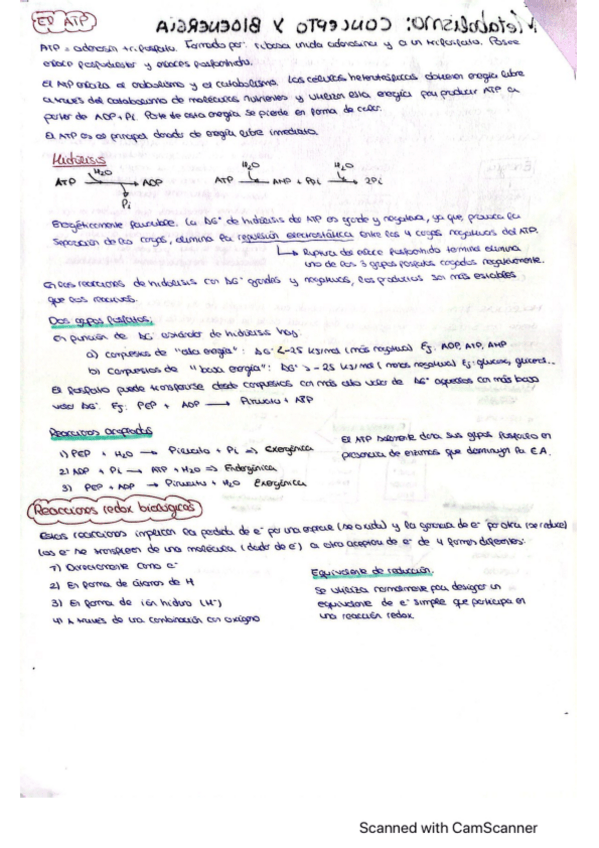 El ATP
Metabolismo: CONCEPTO Y BIOENERGÍA
ATP = adenosin trifosfato. Formado por: ribosa unida adenosina y a un trifosfato. Posee
enlace fosfodiester y enlaces fosfoanhidro.
El ATP enlaza el anabolismo y el catabolismo. Las células heterotróficas obtienen energía libre
a través del catabolismo de moléculas nutrientes y utilizan esta energía para producir ATP a
partir de ADP + Pi. Parte de esta energía se pierde en forma de calor.
El ATP es el principal donador de energía libre inmediata.
Hidrólisis
H2O H2O H2O
ATP → ADP ATP → AMP + PPi → 2Pi
Pi
Energéticamente favorable. La ΔG° de hidrólisis de ATP es grande y negativa, ya que, provoca la
separación de las cargas, elimina la repulsión electrostática entre las 4 cargas negativas del ATP.
↳ Ruptura del enlace fosfoanhidro terminal elimina
uno de los 3 grupos fosfatos cargados negativamente.
En las reacciones de hidrólisis con ΔG° grandes y negativas, los productos son más estables
que los reactivos.
Dos grupos fosfatos:
En función de ΔG estándar de hidrólisis hay:
a) Compuestos de "alta energía": ΔG° < -25 KJ/mol (más negativa) Ej. ADP, ATP, AMP
b) Compuestos de "baja energía": ΔG° > -25 KJ/mol (menos negativa) Ej: glucosa, glicerol...
El fosfato puede transferirse desde compuestos con más alto valor de ΔG° a aquellos con más bajo
valor ΔG°. Ej: PEP + ADP → Piruvato + ATP
Reacciones acopladas
1) PEP + H2O → Piruvato + Pi => Exergónica
2) ADP + Pi → ATP + H2O => Endergónica
3) PEP + ADP → Piruvato + H2O Exergónica
El ATP solamente dona sus grupos fosfato en
presencia de enzimas que disminuyan la E.A.
Reacciones redox biológicas
Estas reacciones implican la perdida de e- por una especie (se oxida) y la ganancia de e- por otra (se reduce)
Los e- se transfieren de una molécula (dador de e-) a otra aceptora de e- de 4 formas diferentes:
1) Directamente como e-
2) En forma de átomos de H
3) En forma de ión hidruro (H-)
4) A través de una combinación con oxígeno
Equivalente de reducción.
Se utiliza normalmente para designar un
equivalente de e- simple que participa en
una reacción redox.
Scanned with CamScanner